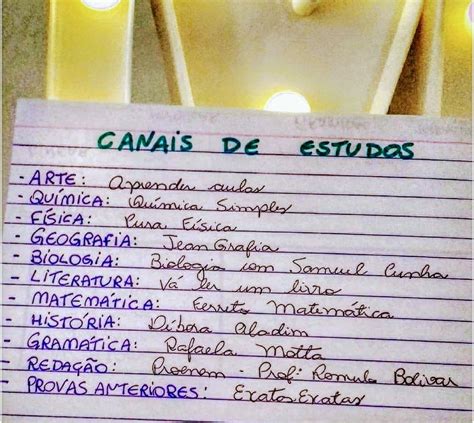 CANAIS DE ESTUDOS
- ARTE: Aprender aulas
- QUÍMICA: Química Simples
- FÍSICA: Pura Física
- GEOGRAFIA: Jean Grafia
- BIOLOGIA: Biologia com Samuel Cunha
- LITERATURA: Vá ler um livro
- MATEMÁTICA: Ferreto Matemática
- HISTÓRIA: Débora Aladim
- GRAMÁTICA: Rafaela Motta
- REDAÇÃO: Proenem - Prof: Romulo Bolivar
- PROVAS ANTERIORES: ExatasExatas